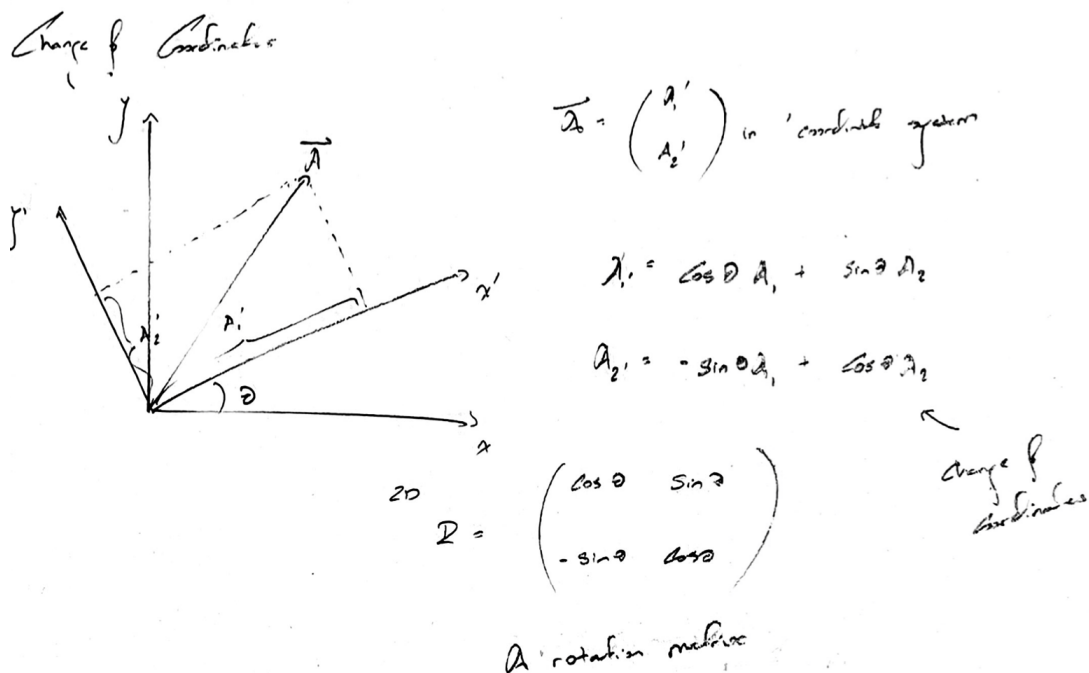 Change of Coordinates
y
A⃗
y'
x'
A₂'
A₁'
θ
x
A⃗ = ( A₁'
A₂' ) in ' coordinate system
A₁' = cos θ A₁ + sin θ A₂
A₂' = - sin θ A₁ + cos θ A₂
change of
coordinates
2D
R = ( cos θ sin θ
- sin θ cos θ )
A rotation matrix